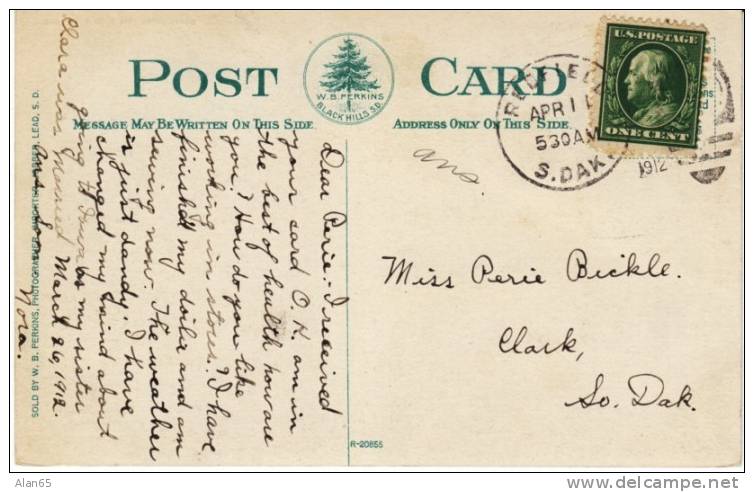 POST CARD
W. B. PERKINS
BLACK HILLS, S.D.
MESSAGE MAY BE WRITTEN ON THIS SIDE.
ADDRESS ONLY ON THIS SIDE.
REDFIELD
APR 11
530AM
S. DAK.
1912
U.S. POSTAGE
ONE CENT
Ans.
Dear Perie:- I received
your card O.K. am in
the best of health how are
you? How do you like
working in store? I have
finished my doilie and am
sewing now. The weather
is just dandy. I have
changed my mind about
going to Iowa as my sister
Clara was married March 26, 1912.
Ans. Soon
Nora.
Miss Perie Bickle.
Clark,
So. Dak.
SOLD BY W. B. PERKINS, PHOTOGRAPHER, LEAD, S. D.
R-20855
Alan65
www.delcampe.net